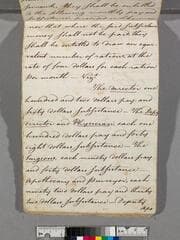 they shall be entitled
nor that where the said subsistence
money shall not be paid they
shall be entitled to draw an equi-
valent number of rations at the
rate of four dollars for each ration
per month — Viz.
The director one
hundred and two dollars pay and
forty dollars subsistence. The Depy
director and Physician each one
hundred dollars pay and forty
eight dollars subsistence — The
Surgeons each ninety dollars pay
and forty dollars subsistence.
Apothecary and Purveyor each
ninety two dollars pay and thirty
two dollars subsistence. Deputy
Apo